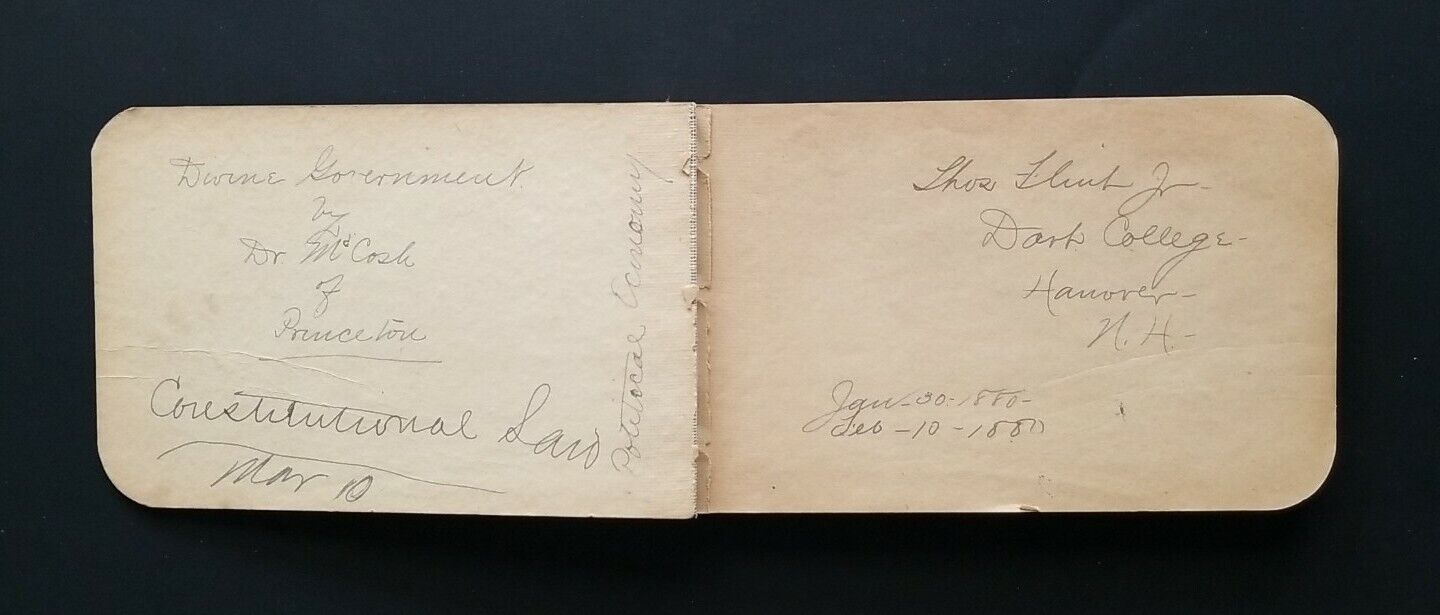 Divine Government
by
Dr. McCosh
of
Princeton
Constitutional Law
Mar 10
Political Economy
Thos Flint Jr-
Dart. College-
Hanover-
N. H.-
Jan-30-1880-
Feb-10-1880